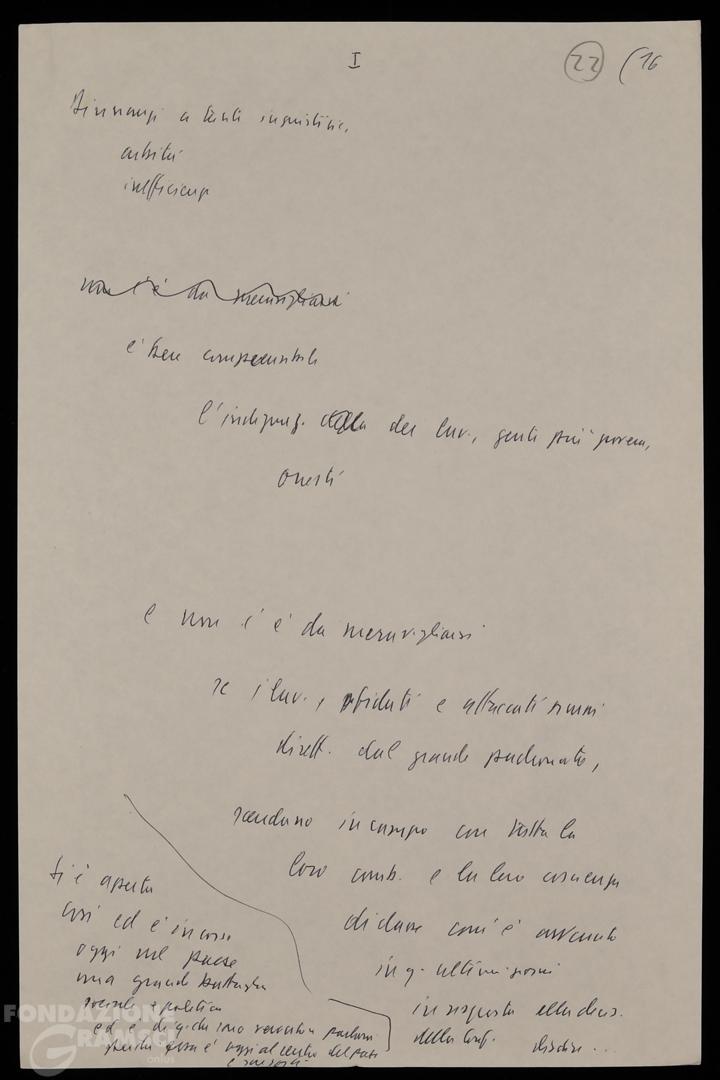 I
22 (16
Dinnanzi a tanti ingiustizie,
arbitri
inefficienze
non c'è da meravigliarsi
è ben comprensibile
l'indignaz. della dei lav., genti più povera,
onesti
e non c'è da meravigliarsi
se i lav., sfidati e attaccati ormai
dirett. dal grande padronato,
scendano in campo con tutta la
loro comb. e la loro coscienza
di classe com'è avvenuto
in q. ultimi giorni
in risposta alla decis.
della Conf. disdire ...
Si è aperta
così ed è in corso
oggi nel paese
una grande battaglia
sociale e politica
ed è di q. che sono venuto a parlarvi
perché essa è oggi al centro del paese
FONDAZIONE
GRAMSCI
onlus